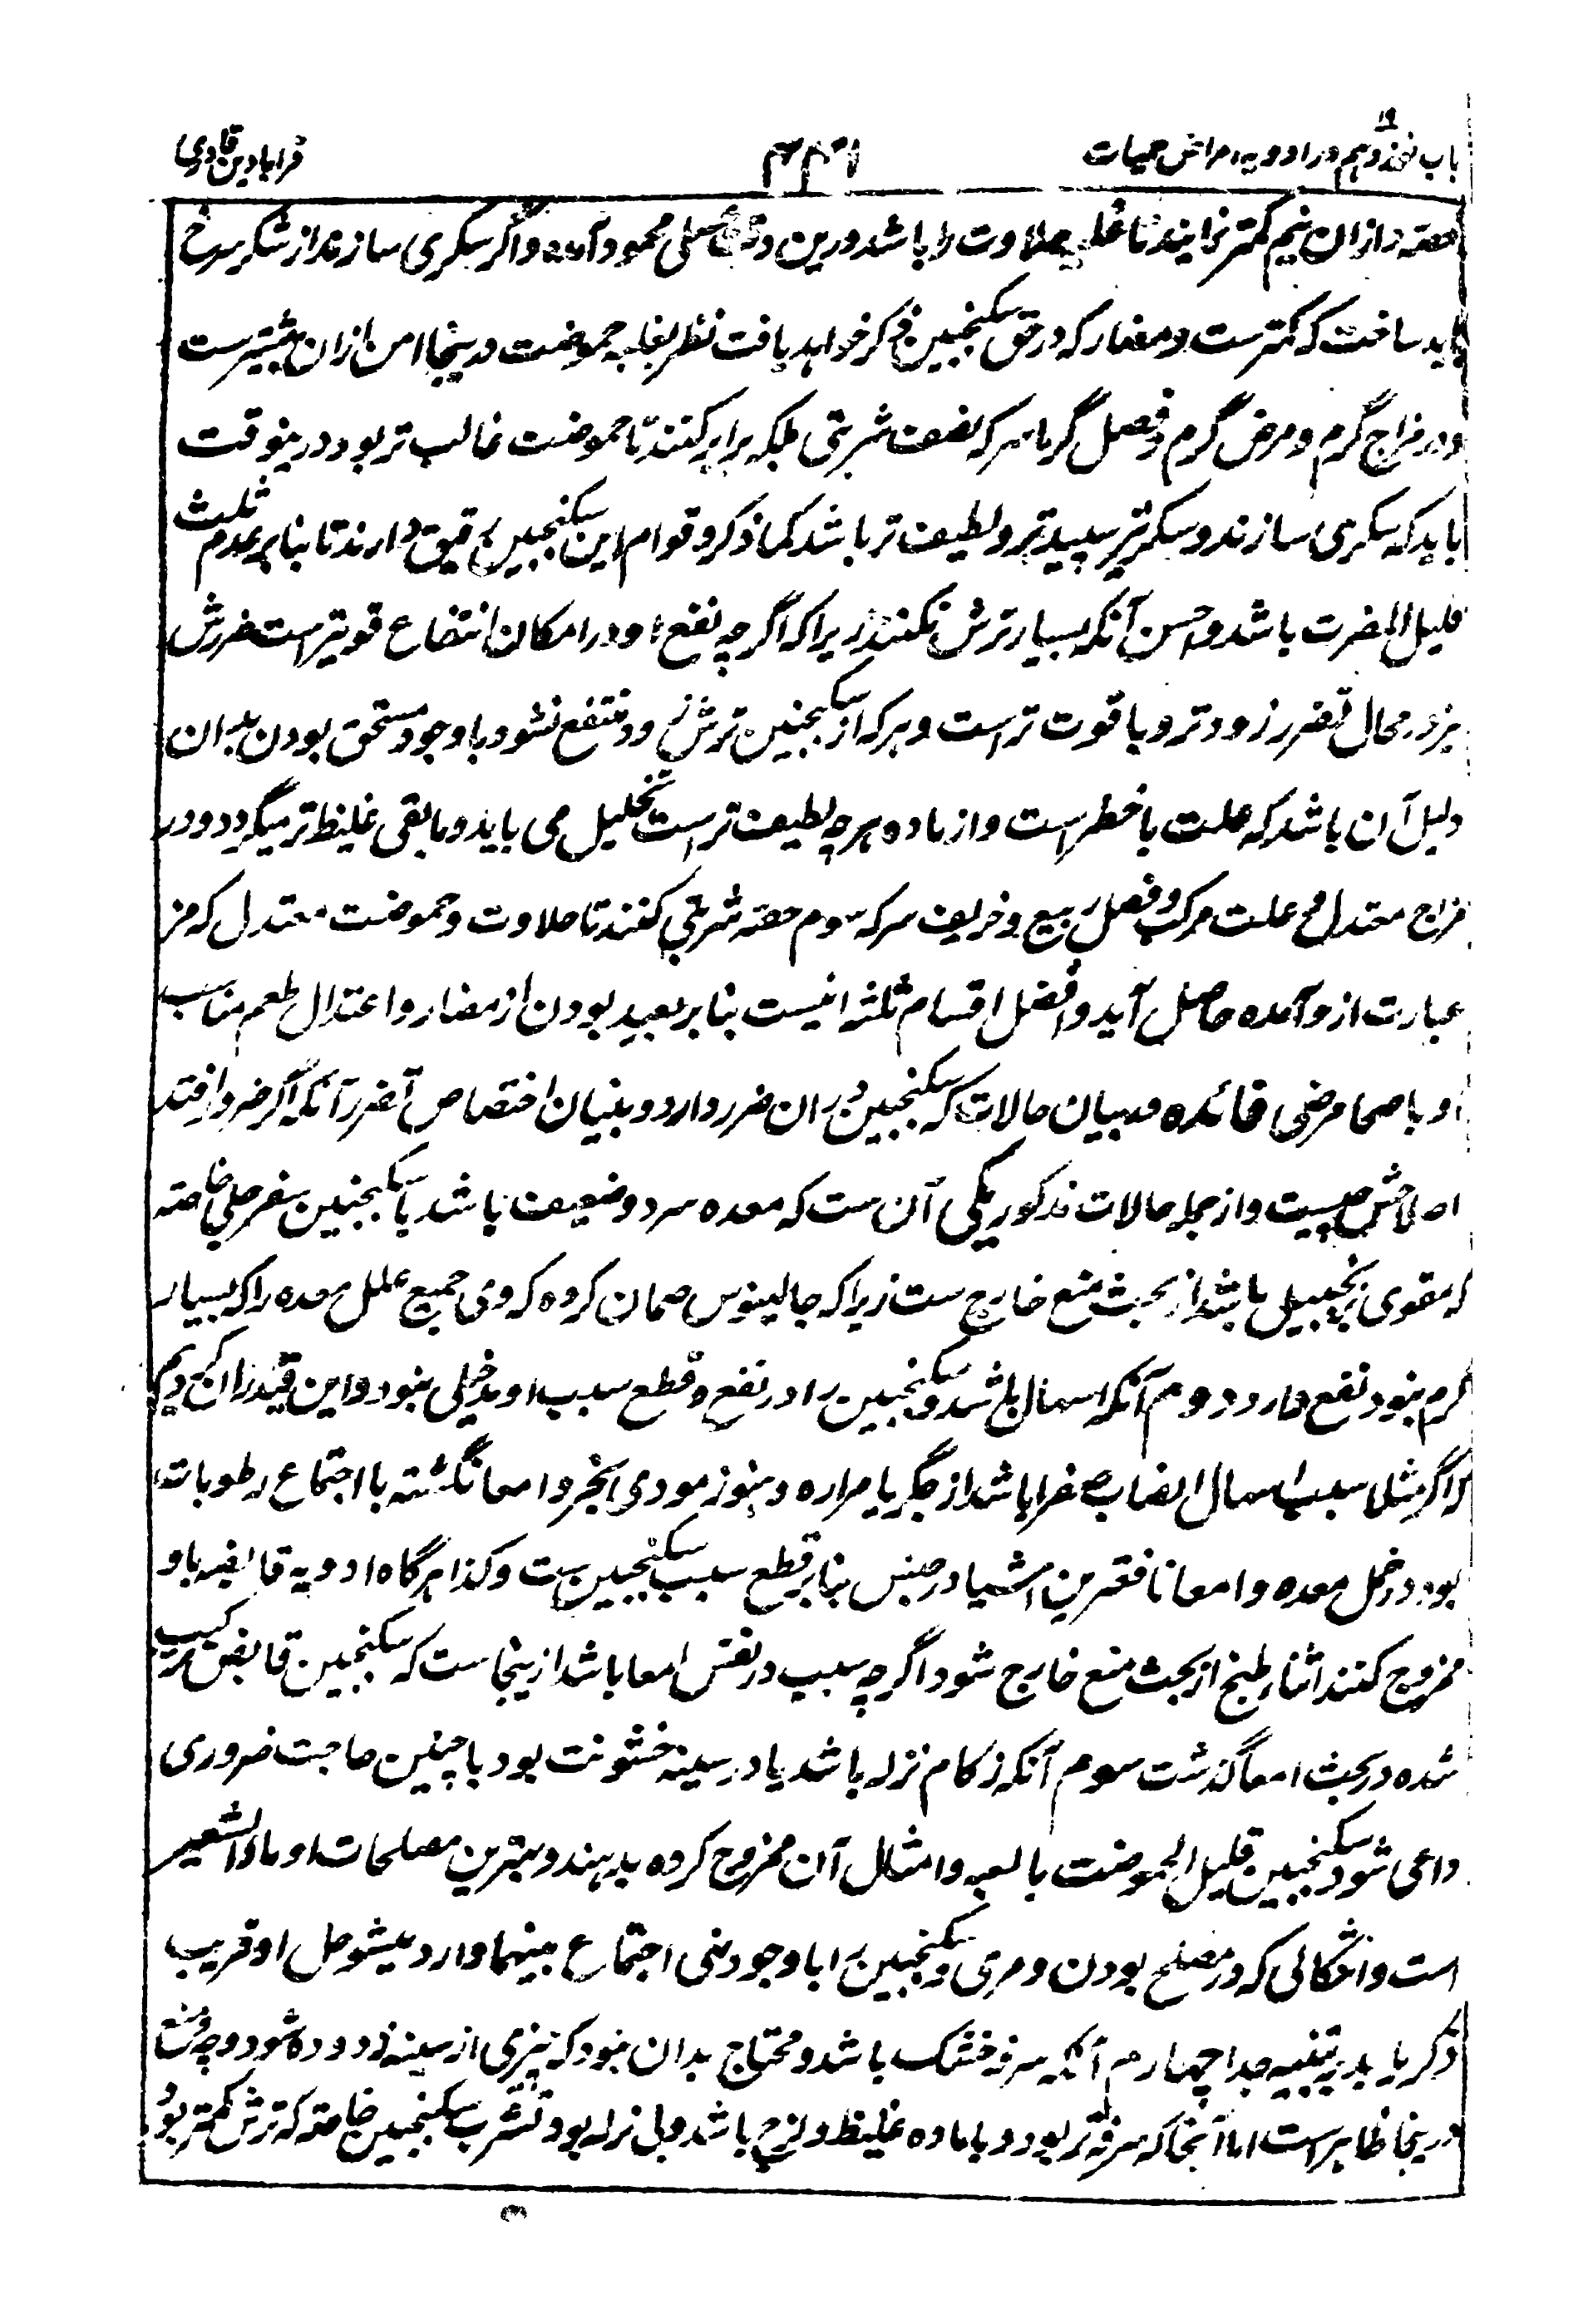 باب نوزدهم در ادویه امراض حمیات
قرابادین قادری
حصه ازان نیم کمتر نمایند تا غلبه حلاوت را باشد و درین وقت عسلی محمود آمده و اگر سکری سازند از شکر سرخ
باید ساخت که کمترست و مضار که در حق سکنجبین ذکر خواهد یافت نظر بغلبه حموضت در ینجا امن ازان بیشترست
و در مزاج گرم و مرض گرم و فصل گرما سرکه نصف شربتی بلکه برابر کنند تا حموضت غالب تر بود در ینوقت
باید که سکری سازند و سکر تر سپید تر و لطیف تر باشد کما ذکر و قوام این سکنجبین رقیق دارند تا بنا بر عدم ثلث
قلیل المضرت باشد و احسن آنکه بسیار ترش نکنند زیرا که اگر چه نفع او در امکان انتفاع قویترست ضررش
نیز در محال تضرر زود تر و با قوت تر است و هر که از سکنجبین ترش زود منتفع نشود باوجود مستحق بودن بدان
دلیل آن باشد که علت با خطرست و از ماده هر چه لطیف تر است تحلیل می یابد و مابقی غلیظ تر میگردد و در
مزاج معتدل و علت مرکب و فصل ربیع و خریف سرکه سوم حصه شربتی کنند تا حلاوت و حموضت معتدل که مز
عبارت از و آمده حاصل آید و افضل اقسام ثلثه اینست بنا بر بعید بودن از مضار و اعتدال طعم مناسب
او باصحا و مرضی فائده در بیان حالات که سکنجبین در ان ضرر دارد و بنیان اختصاص آ نضرر آنکه اگر ضرور افتد
اصلاحش چیست و از جمله حالات مذکور یکی آن ست که معده سرد و ضعیف باشد یا سکنجبین سفرجلی خاصه
که مقوی بزنجبیل باشد از بحث منع خارج ست زیرا که جالینوس ضمان کرده که وی جمیع علل معده را که بسیار
گرم نبود نفع دارد دوم آنکه اسهال باشد و سکنجبین را در نفع و قطع سبب او مدخلی نبود و این قید را کردیم
که اگر مثلا سبب اسهال انصباب صفرا باشد از جگر یا مراره و هنوز مودی بجرد امعا نگشته یا اجتماع رطوبات
بود در خمل معده و امعا نافعترین اشیا در حبس بنا بر قطع سبب سکنجبین ست و کذا هرگاه ادویه قابضه با و
ممزوج کنند اثنا رطبخ از بحث منع خارج شود اگر چه سبب در نفس امعا باشد ازینجا ست که سکنجبین قابض مرکب
شده در بحث امعا گذشت سوم آنکه زکام نزله باشد یا در سینه خشونت بود با چنین حاجت ضروری
داعی شود سکنجبین قلیل الحموضت بالعبه و امثال آن ممزوج کرده بدهند و بهترین مصلحات او ماء الشعیر
است و اشکالی که در مصلح بودن و مری و سکنجبین را با وجود نهی اجتماع بینهما وارد میشود حل او قریب
ذکر یابد به تنبیه جدا چهارم آنکه سرفه خشک باشد و محتاج بدان نبود که چیزی از سینه زدوده شود و وجه منع
در ینجا ظاهرست اما آنجا که سرفه تر بود و با ماده غلیظ و لزج باشد و بی نزله بود شرب سکنجبین خاصه که ترش کمتر بود